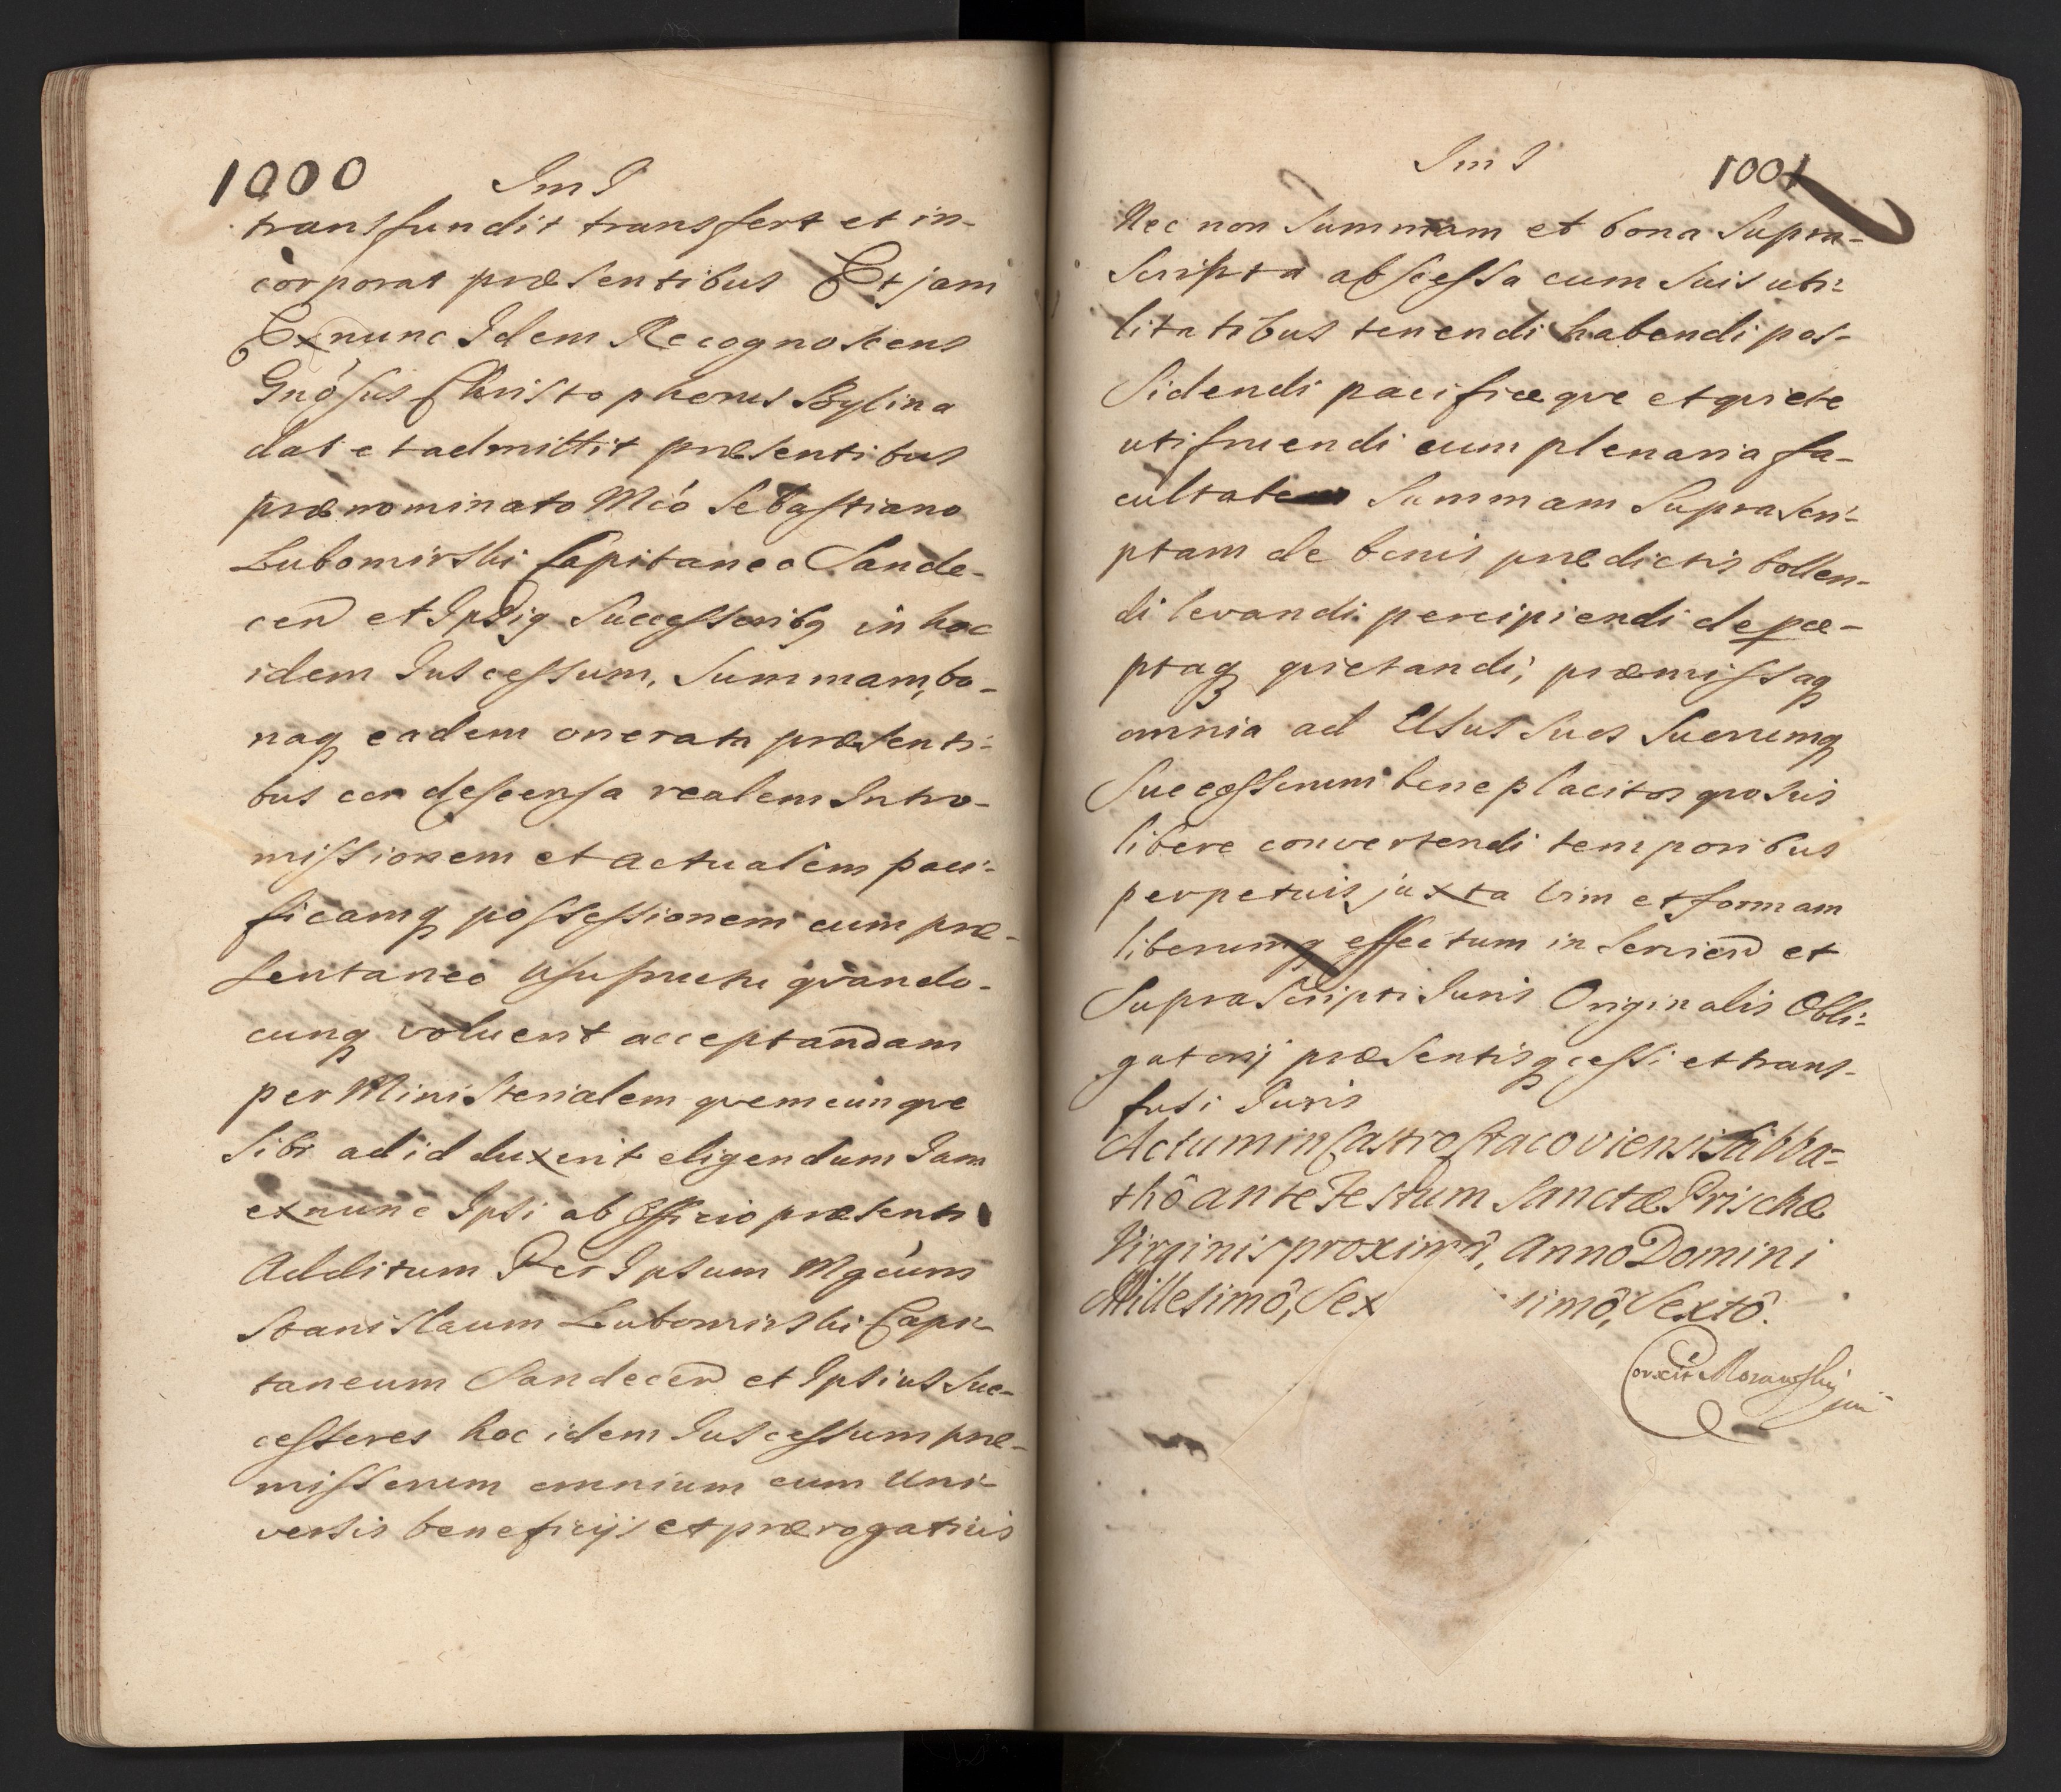 1000
Im I
transfundit transfert et in-
corporat præsentibus Et jam
Ex nunc Idem Recognoscens
Gnósus Christophorus Bylina
dat et admittit præsentibus
prænominato Mcó Sebastiano
Lubomirski Capitaneo Sande-
cen et Ipsiq Successoribq in hoc
idem Jus cessum, Summam, bo-
naq eadem onerata præsenti-
bus condescensa realem Intro-
missionem et actualem paci-
ficamq possessionem cum præ-
sentaneo usufructu qvando-
cunq voluerit acceptandam
per Ministerialem qvemcunqve
Sibi ad id duxerit eligendum Jam
ex nunc Ipsi ab Officio præsenti
Additum Per Ipsum Mgcúm
Stanislaum Lubomirski Capi-
taneum Sandecen et Ipsius Suc-
cessores hoc idem Jus cessum præ-
missorum omnium cum Uni-
versis beneficijs et prærogativis
Im I
1001
Nec non Summam et bona Supra-
Scripta abscessa cum Suis uti-
litatibus tenendi habendi pos-
Sidendi pacificeqve et qviete
utifruendi cum plenaria fa-
cultate Summam Suprascri-
ptam de bonis prædictis tollen-
di levandi percipiendi de perce-
ptaq qvietandi, præmissaq
omnia ad Usus Suos Suorumq
Successorum beneplacitos pro suis
libere convertendi temporibus
perpetuis juxta vim et formam
liberumq effectum in Scriend et
Suprascripti Juris Originalis Obli-
gatorij præsentisq cessi et trans-
fusi Juris
Actum in Castro Cracoviensi Sabba-
thô ante Festum Sanctæ Prischæ
Virginis proximô, Anno Domini
Millesimô, Sex imô, Sextô.
Correxit Morawski